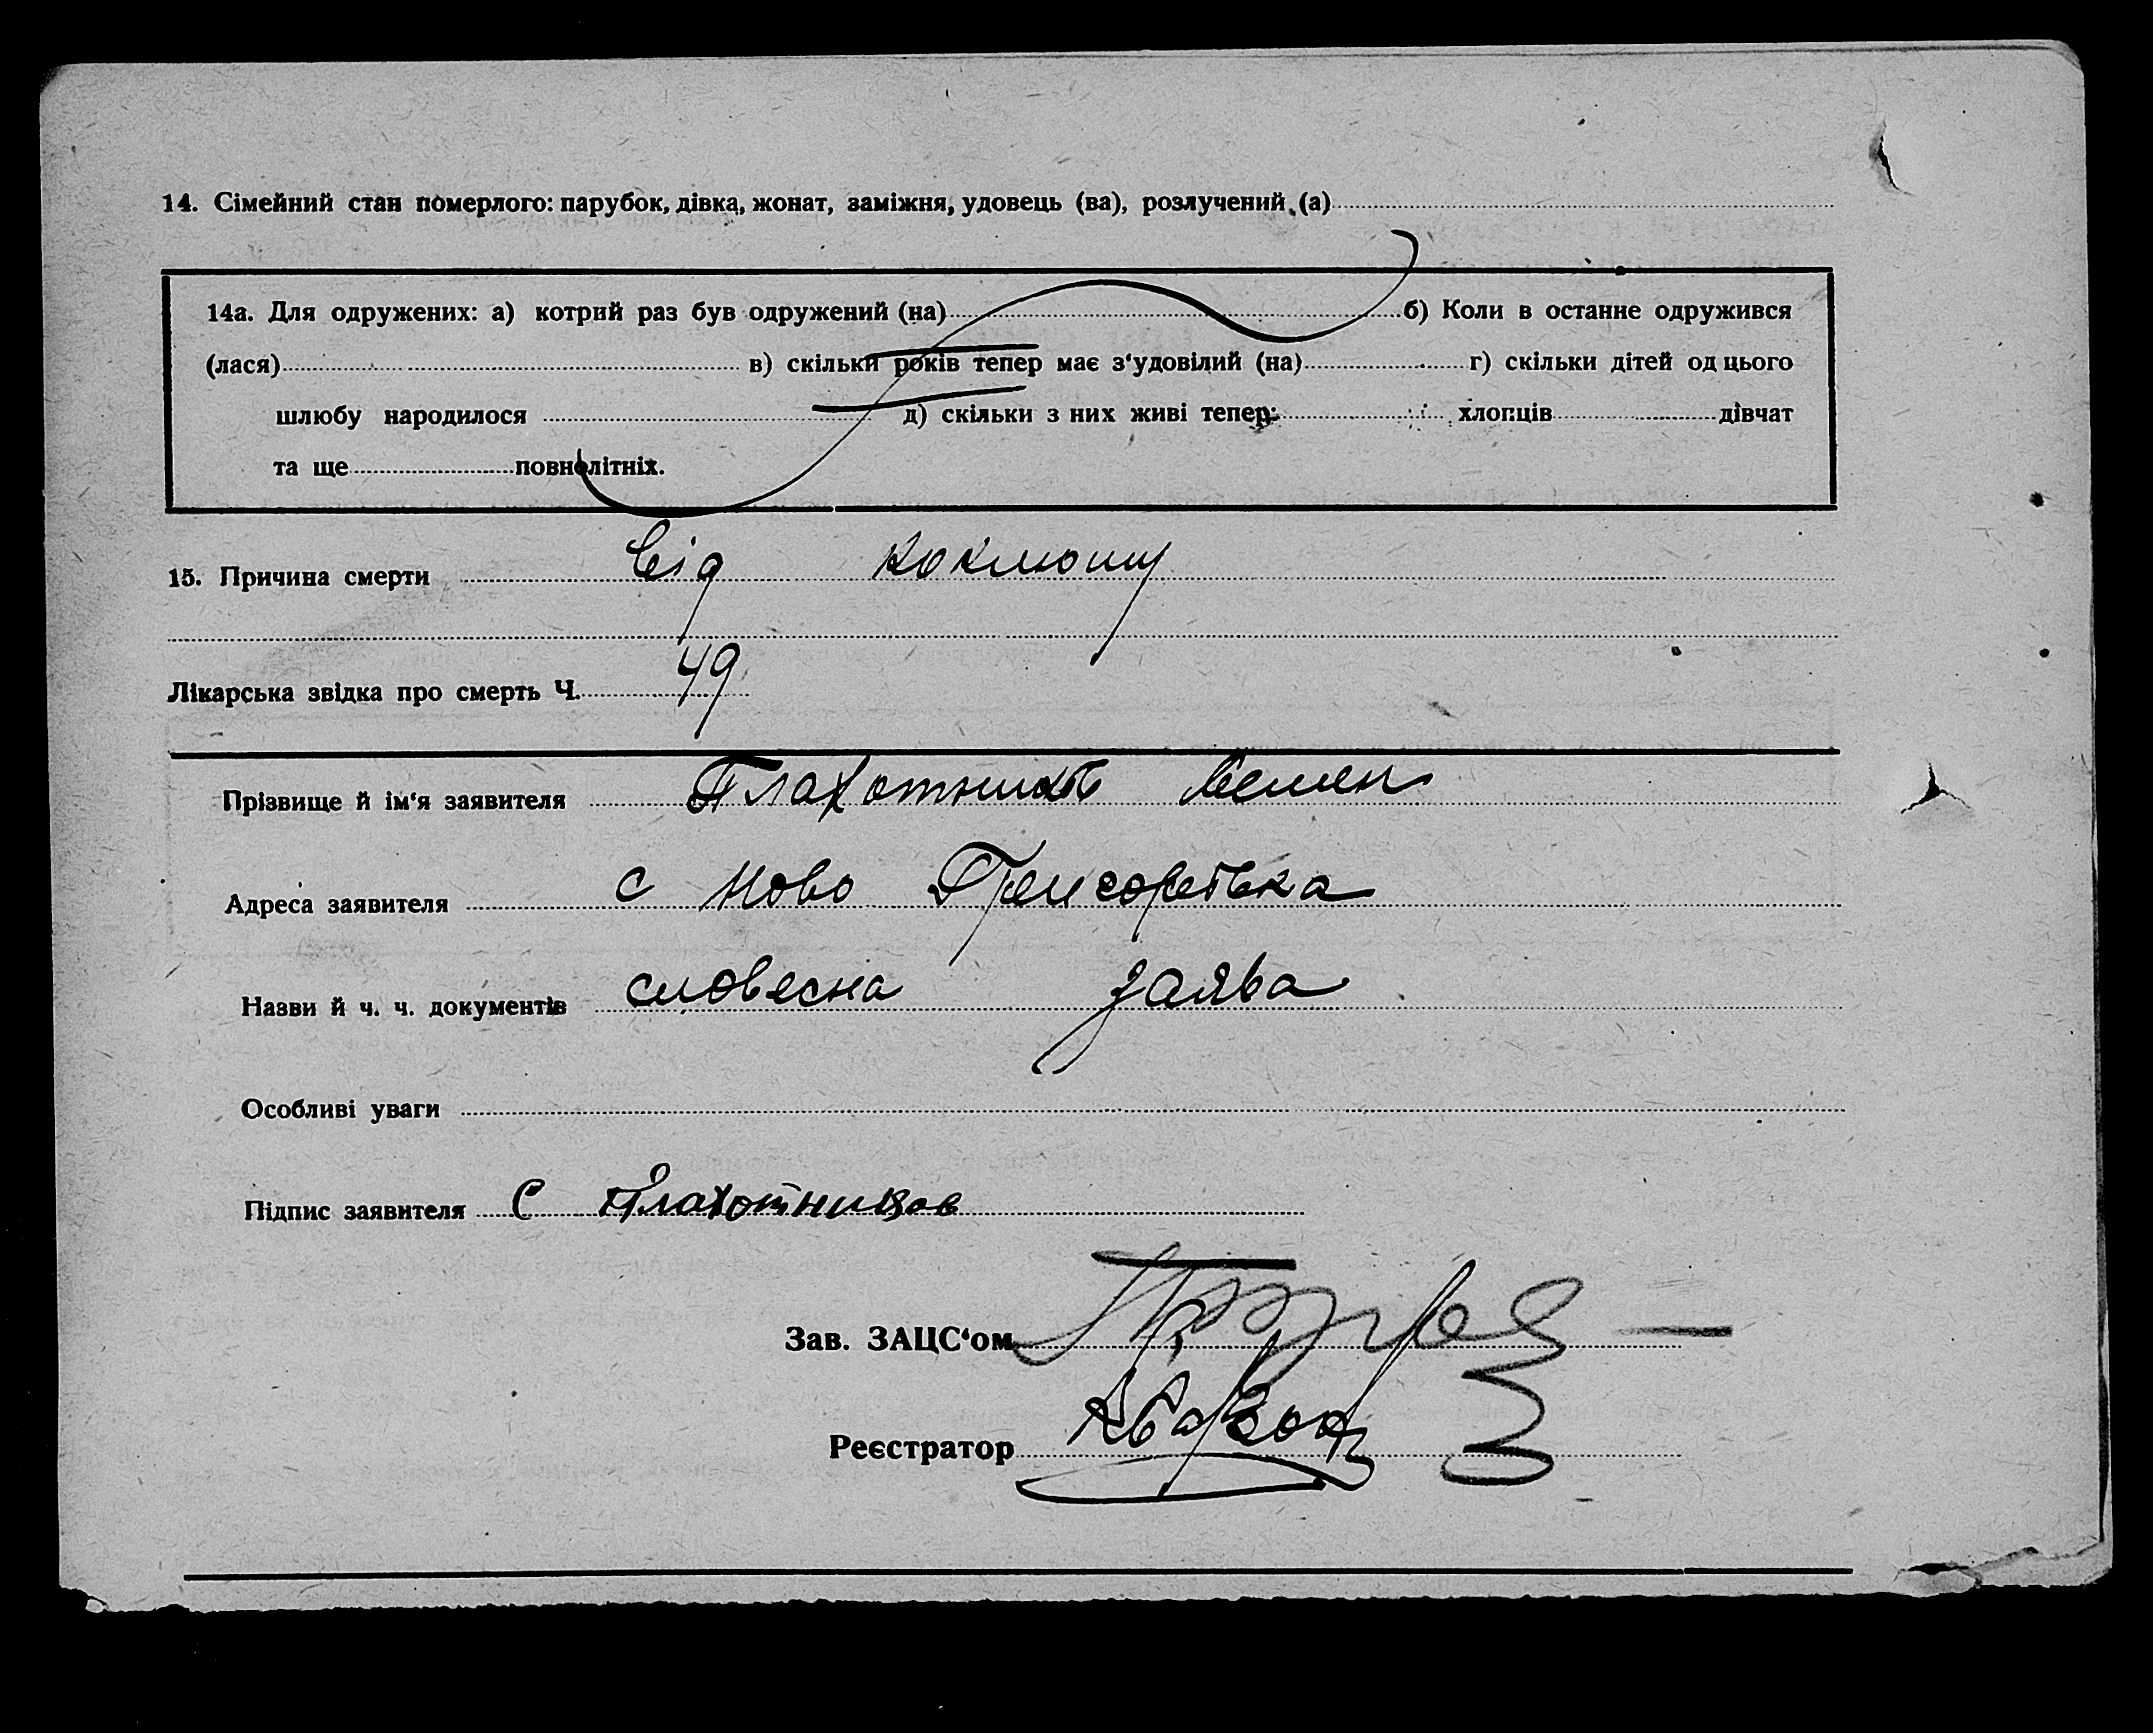 14. Сімейний стан померлого: парубок, дівка, жонат, заміжня, удовець (ва), розлучений (а)
14а. Для одружених: а) котрий раз був одружений (на) б) Коли в останне одружився
(лася) в) скільки років тепер має з‘удовілий (на) г) скільки дітей од цього
шлюбу народилося д) скільки з них живі тепер: хлопців дівчат
та ще повнолітніх.
15. Причина смерти Від коклюшу
Лікарська звідка про смерть Ч. 49
Прізвище й ім‘я заявителя Плахотник Семен
Адреса заявителя с Ново Григоревка
Назви й ч. ч. документів словесна заява
Особливі уваги
Підпис заявителя С Плахотников
Зав. ЗАЦС‘ом
Реєстратор